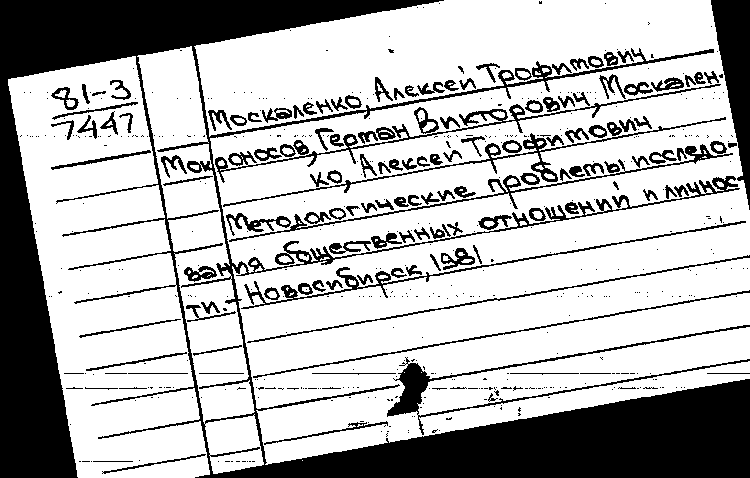 81-3
7447
Москаленко, Алексей Трофимович.
Мокроносов, Герман Викторович, Москален-
ко, Алексей Трофимович.
Методологические проблемы исследо-
вания общественных отношений и личнос-
ти. - Новосибирск, 1981.